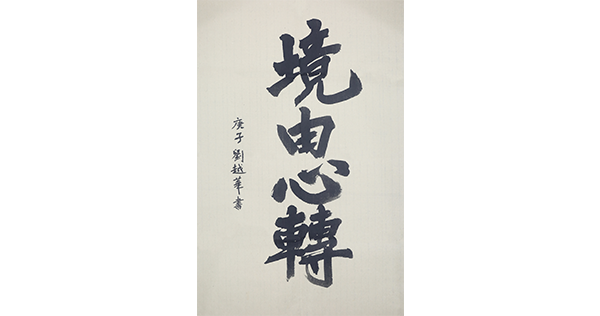 境由心轉
庚子 劉越華書